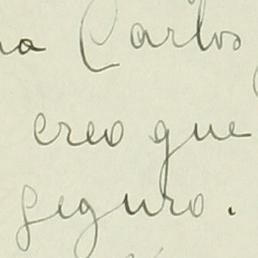 na Carlos
creo que
seguro.